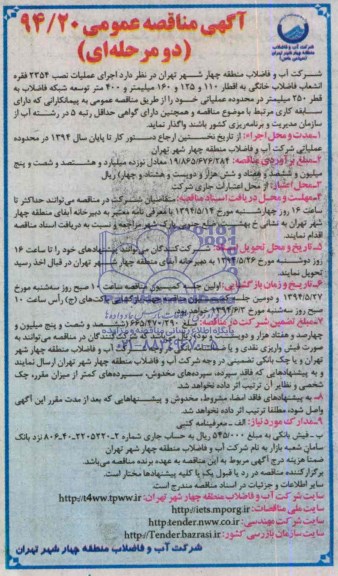 آگهی مناقصه عمومی ۹۴/۲۰
(دو مرحله‌ای)
شرکت آب و فاضلاب
منطقه چهار شهر تهران
شرکت آب و فاضلاب منطقه چهار شهر تهران در نظر دارد اجرای عملیات نصب ۲۳۵۴ فقره
انشعاب فاضلاب خانگی به اقطار ۱۱۰ و ۱۲۵ و ۱۶۰ میلیمتر و ۴۰۰ متر توسعه شبکه فاضلاب به
قطر ۲۵۰ میلیمتر در محدوده عملیاتی خود را از طریق مناقصه عمومی به پیمانکارانی که دارای
سابقه کاری مرتبط با موضوع مناقصه و همچنین دارای گواهی حداقل رتبه ۵ در رشته آب از
سازمان مدیریت و برنامه‌ریزی کشور باشند واگذار نماید.
۱-مدت و محل اجراء: از تاریخ نخستین ارجاع دستور کار تا پایان سال ۱۳۹۴ در محدوده
عملیاتی شرکت آب و فاضلاب منطقه چهار شهر تهران.
۲-مبلغ برآوردی مناقصه: ۱۹/۸۶۵/۶۷۶/۲۸۴ معادل نوزده میلیارد و هشتصد و شصت و پنج
میلیون و ششصد و هفتاد و شش هزار و دویست و هشتاد و چهار) ریال
۳-محل اعتبار: از محل اعتبارات جاری شرکت
۴-مهلت و محل دریافت اسناد مناقصه: متقاضیان شرکت در مناقصه می‌توانند حداکثر تا
ساعت ۱۶ روز چهارشنبه مورخ ۱۳۹۴/۵/۱۴ با معرفی نامه معتبر به دبیرخانه آبفای منطقه چهار
شهر تهران به نشانی خ بهشتی مراجعه و نسبت به دریافت اسناد مناقصه
اقدام نمایند.
۵-تاریخ و محل تحویل اسناد: شرکت‌کنندگان می‌توانند پیشنهادهای خود را تا ساعت ۱۶
روز دوشنبه مورخ ۱۳۹۴/۵/۲۶ به دبیرخانه آبفای منطقه چهار شهر تهران در قبال اخذ رسید
تحویل نمایند.
۶-تاریخ و زمان بازگشایی: اولین جلسه کمیسیون مناقصه ساعت ۱۰ صبح روز سه‌شنبه مورخ
۱۳۹۴/۵/۲۷ و دومین جلسه رأس ساعت ۱۰
صبح روز سه‌شنبه مورخ خواهد بود.
۷-مبلغ تضمین شرکت در مناقصه: ۶۶۵/۴۷۰/۲۹۰ (ششصد و شصت و پنج میلیون و
چهارصد و هفتاد هزار و دویست و نود) ریال می‌باشد که شرکت‌کنندگان در مناقصه می‌توانند به
صورت فیش واریزی نقدی و یا آب و فاضلاب منطقه چهار شهر
تهران و یا چک بانکی تضمینی در وجه شرکت آب و فاضلاب منطقه چهار شهر تهران ارسال نمایند
و به پیشنهادهایی که فاقد سپرده، سپرده‌های مخدوش، سپرده‌های کمتر از میزان مقرر، چک
شخصی و نظایر آن ترتیب اثر داده نخواهد شد.
۸- به پیشنهادهای فاقد امضا، مشروط، مخدوش و پیشنهادهایی که بعد از مدت مقرر این آگهی
واصل شود، مطلقا ترتیب اثر داده نخواهد شد.
۹-مدارک مورد نیاز: الف- معرفینامه کتبی
ب - فیش بانکی به مبلغ ۵۴۵/۰۰۰ ریال به حساب جاری شماره ۲-۲۲۰۵۲۲-۴۰-۸۰۶ نزد بانک
سامان شعبه بازار به نام شرکت آب و فاضلاب منطقه چهار شهر تهران
ضمنا هزینه درج آگهی مربوط به این مناقصه به عهده برنده مناقصه می‌باشد.
برگزارکننده مناقصه در رد یا قبول یک یا کلیه پیشنهادها مختار است.
سایر اطلاعات و جزئیات در اسناد مناقصه مندرج است.
سایت شرکت آب و فاضلاب منطقه چهار شهر تهران: http://t4ww.tpww.ir
سایت ملی مناقصات: http://iets.mporg.ir
سایت شرکت مهندسی: http://tender.nww.co.ir
سایت سازمان بازرسی کشور: http://Tender.bazrasi.ir
شرکت آب و فاضلاب منطقه چهار شهر تهران